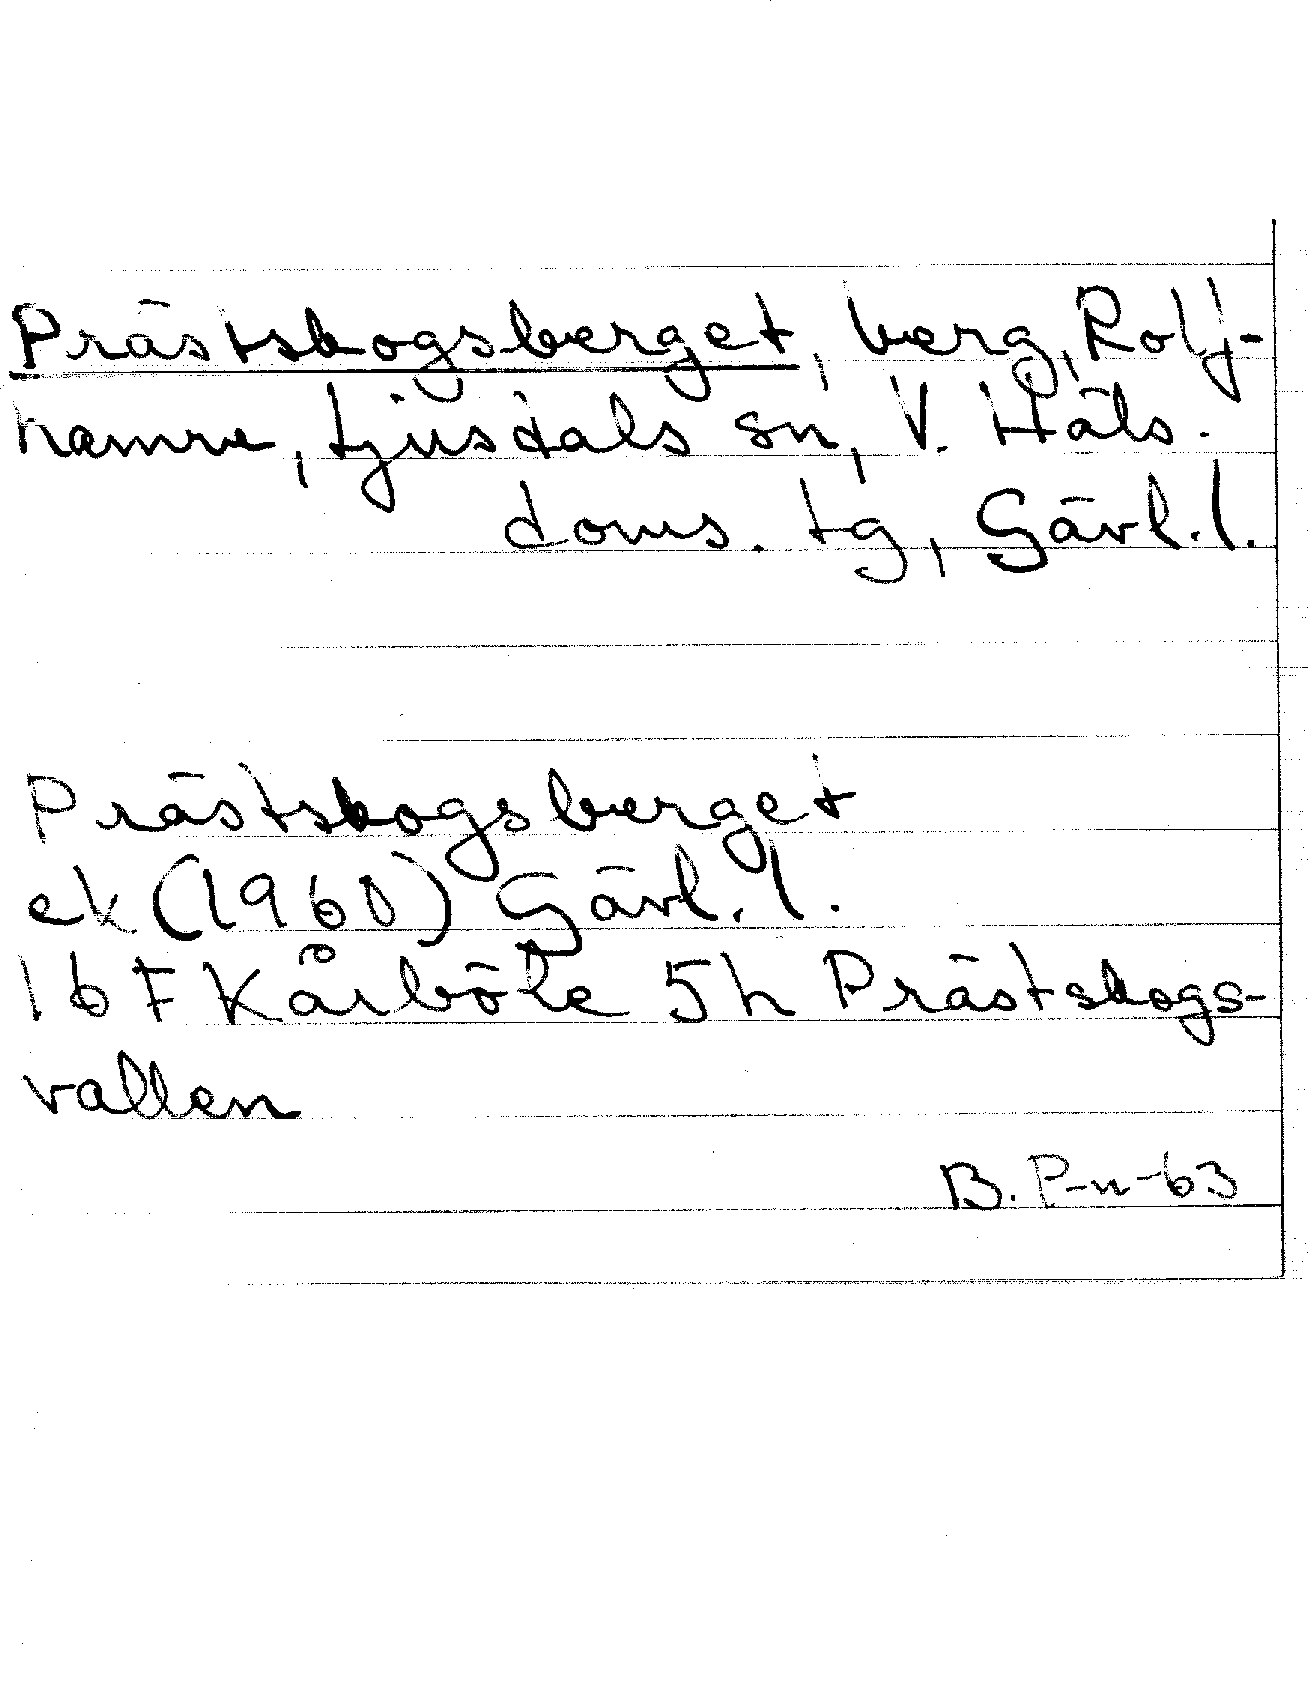 Prästskogsberget, berg, Rolf-
hamre, Ljusdals sn, V. Häls.
doms. tg, Gävl.l.
Prästskogsberget
ek (1960) Gävl.l.
16 F Kårböle 5h Prästskogs-
vallen
B. P-n-63